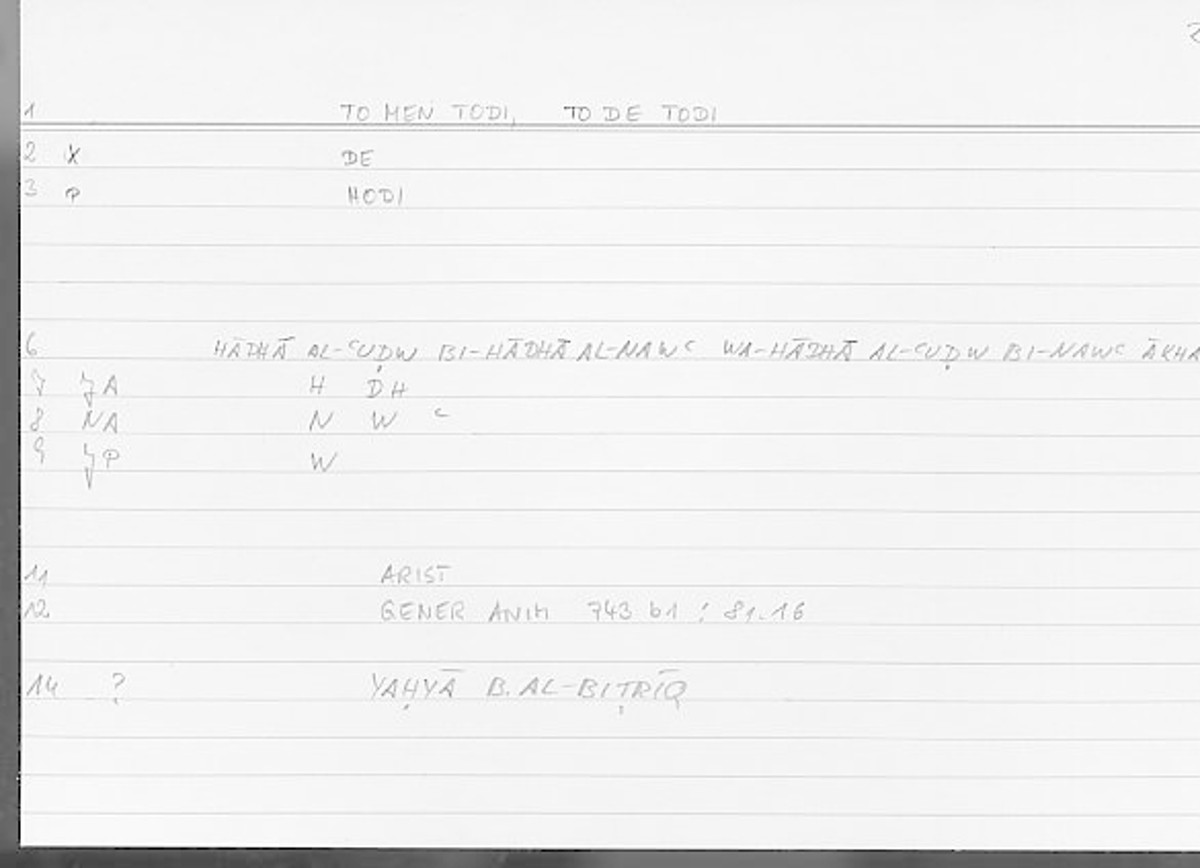 2
1 TO MEN TODI, TO DE TODI
2 X DE
3 P HODI
6 HĀDHĀ AL-ʿUḌW BI-HĀDHĀ AL-NAWʿ WA-HĀDHĀ AL-ʿUḌW BI-NAWʿ ĀKHA
7 JA H DH
8 NA N W ʿ
9 JP W
11 ARIST
12 GENER ANIM 743 b1 : 81.16
14 ? YAḤYĀ B. AL-BIṬRĪQ